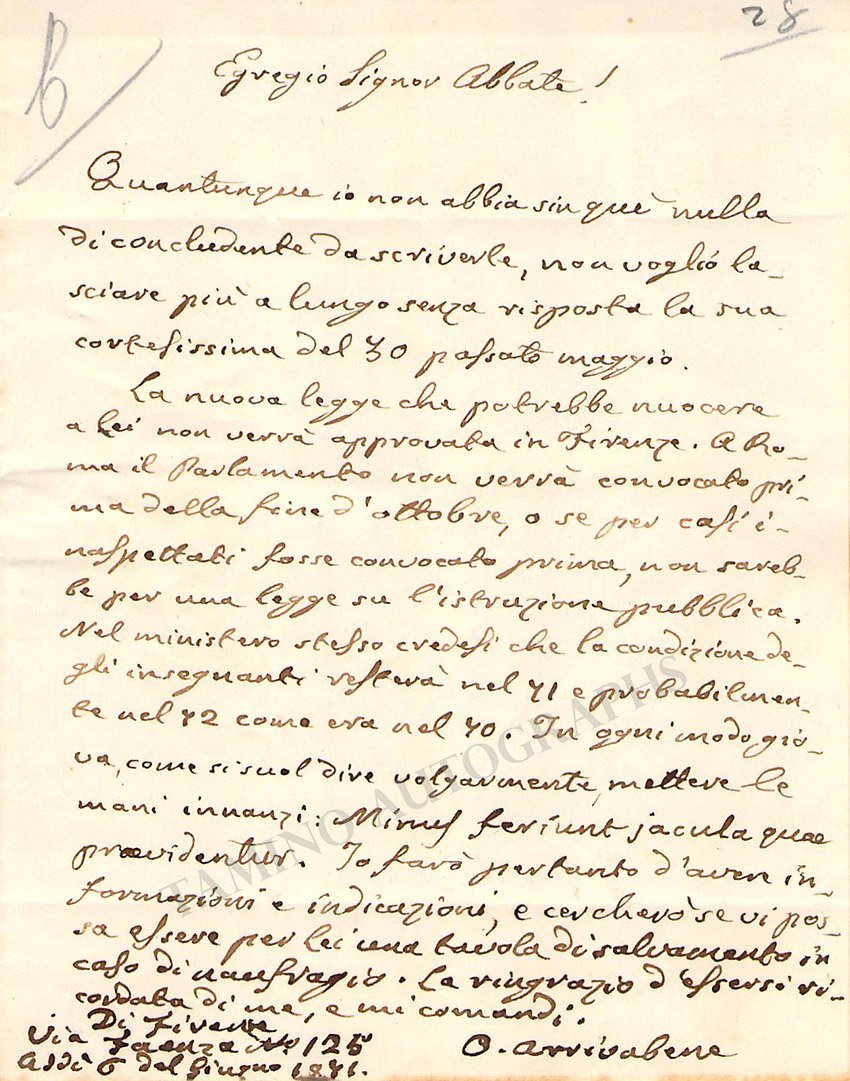 28
Egregio Signor Abbate!
Quantunque io non abbia sin què nulla
di concludente da scriverle, non voglio la-
sciare più a lungo senza risposta la sua
cortesissima del 30 passato maggio.
La nuova legge che potrebbe nuocere
a Lei non verrà approvata in Firenze. A Ro-
ma il Parlamento non verrà convocato pri-
ma della fine d'ottobre, o se per casi i-
naspettati fosse convocato prima, non sareb-
be per una legge su l'istruzione pubblica.
Nel ministero stesso credesi che la condizione de-
gli insegnanti resterà nel 71 e probabilmen-
te nel 72 come era nel 70. In ogni modo gio-
va, come si suol dire volgarmente, mettere le
mani innanzi: Minus feriunt jacula quae
praevidentur. Io farò pertanto d'avere in-
formazioni e indicazioni, e cercherò se vi pos-
sa essere per lei una tavola di salvamento in
caso di naufragio. La ringrazio d'essersi ri-
cordata di me, e mi comandi.
Di Firenze
Via Faenza No. 125
Addì 6 del Giugno 1871.
O. Arrivabene
TAMINO AUTOGRAPHS